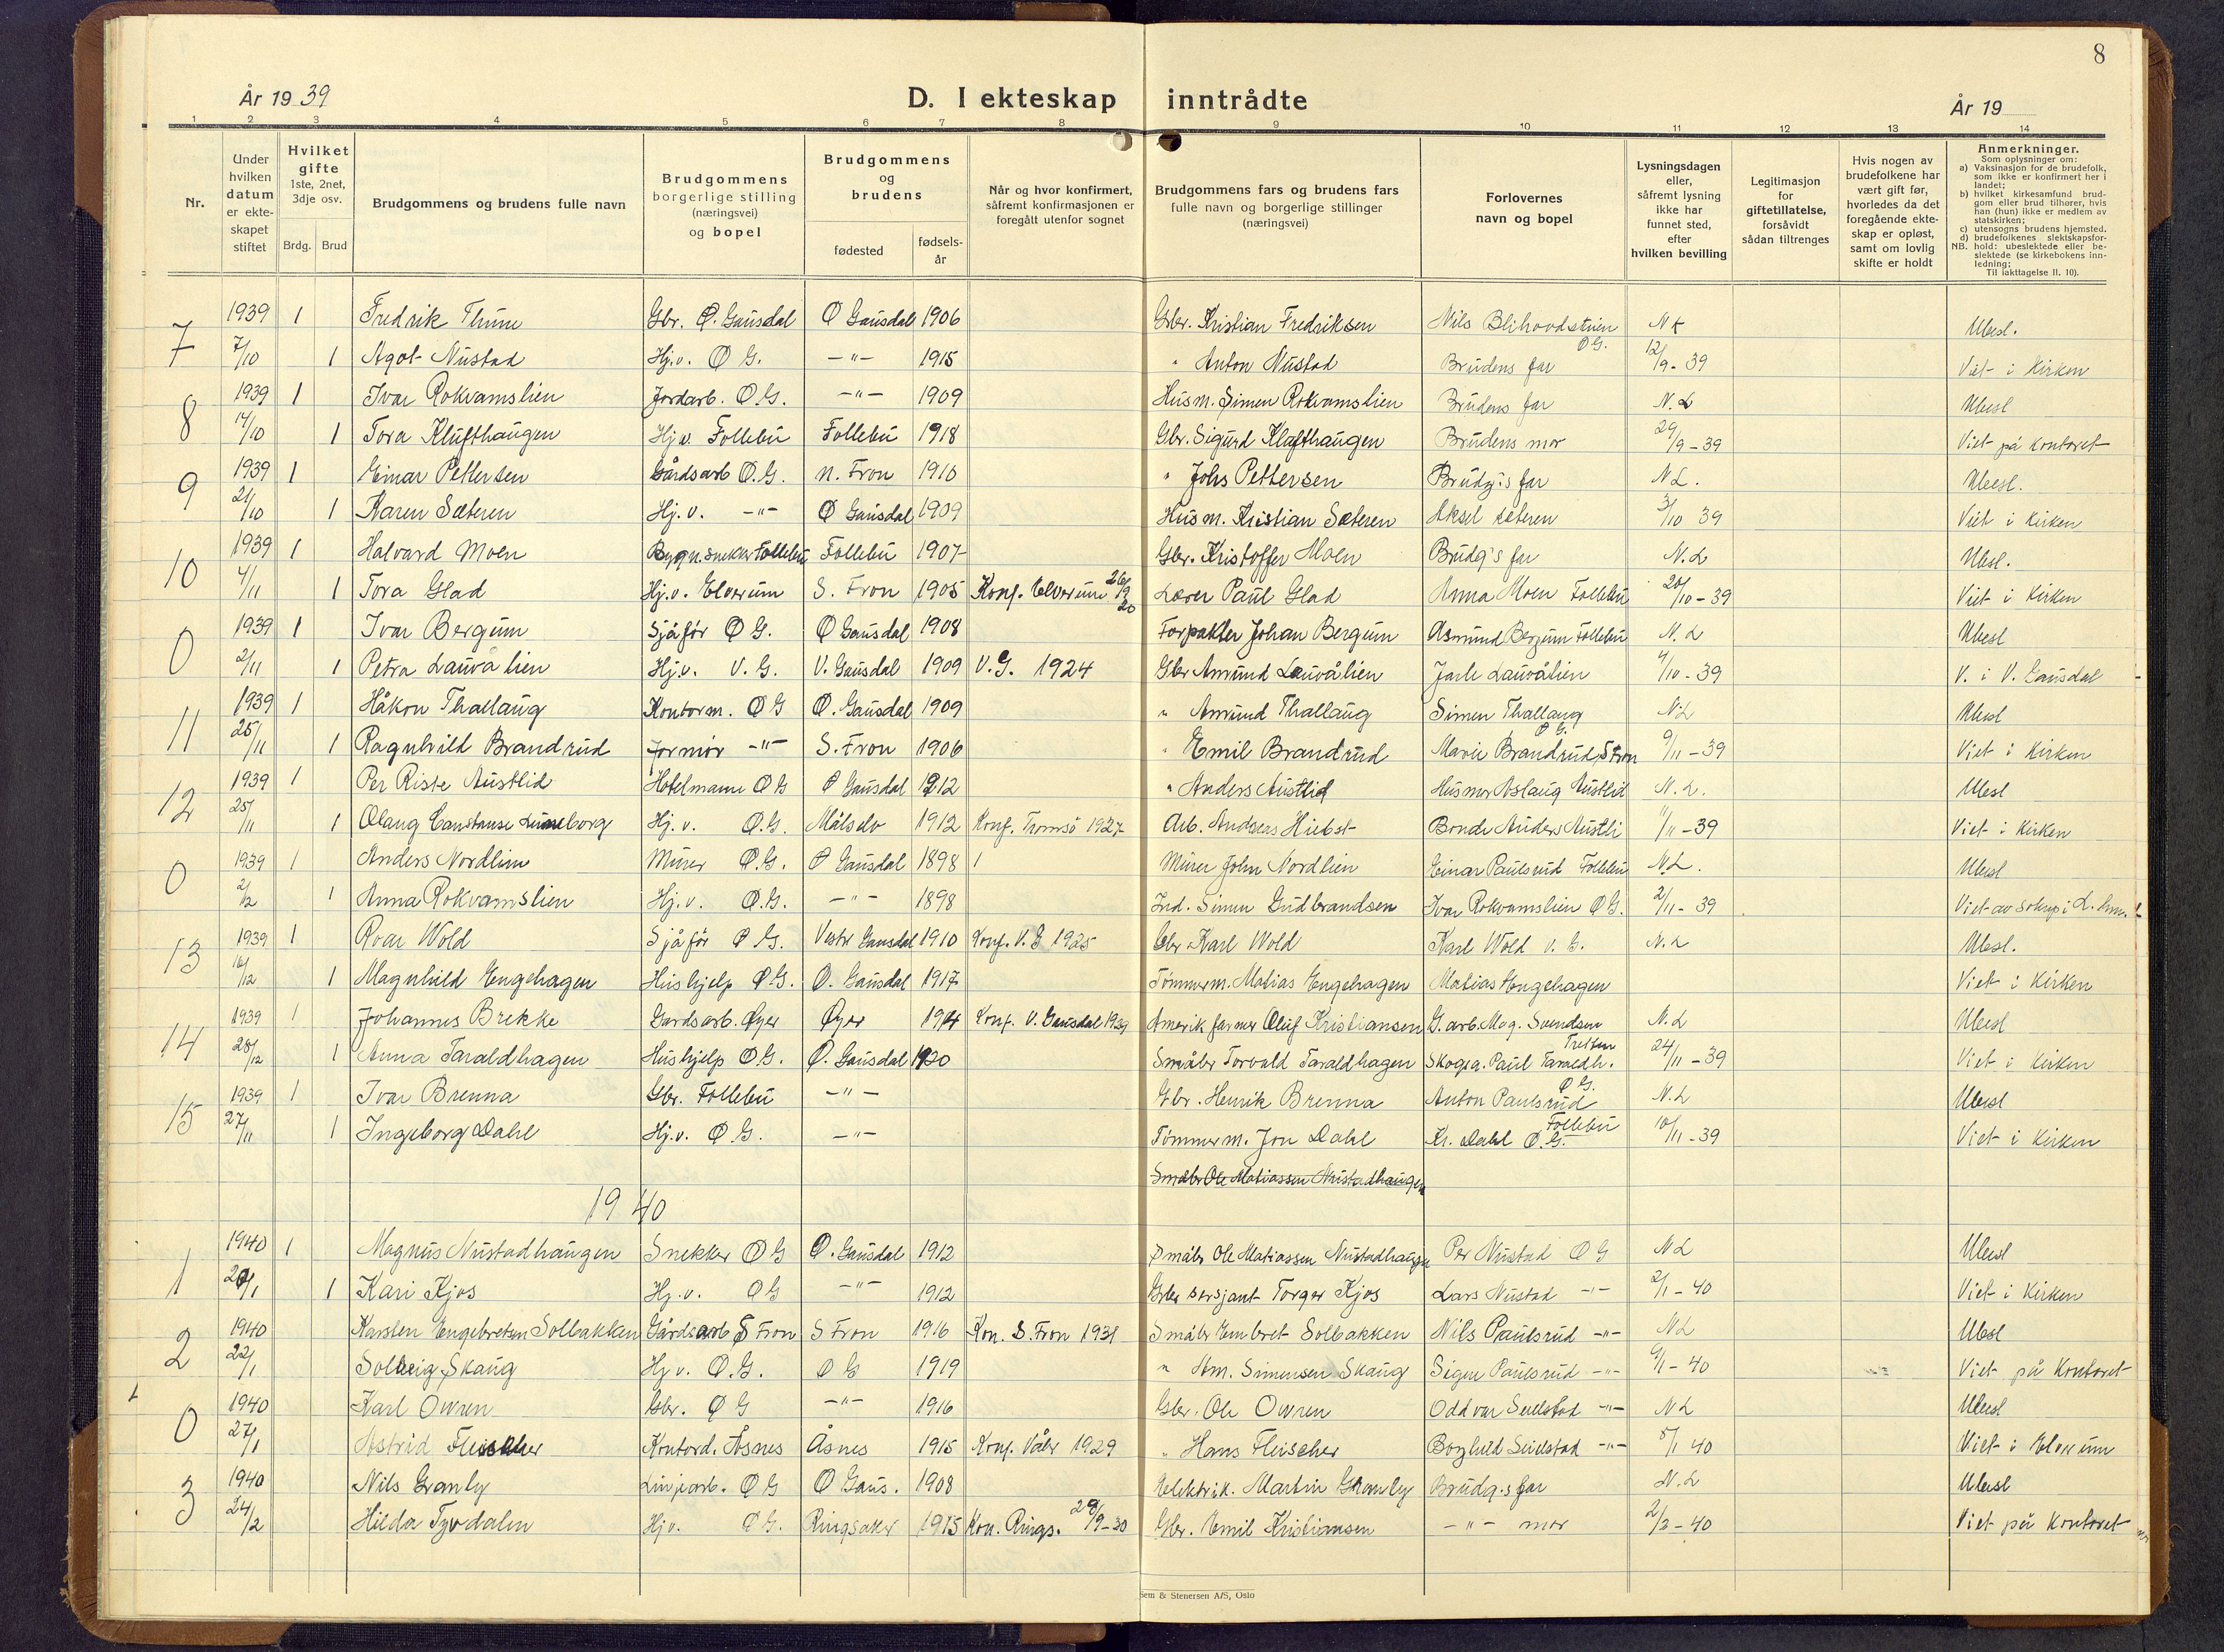 8
År 19 39
D. I ekteskap inntrådte
År 19
1 2 3 4 5 6 7 8 9 10 11 12 13 14
Nr.
Under hvilken datum er ekteskapet stiftet
Hvilket gifte 1ste, 2net, 3dje osv.
Brdg. Brud
Brudgommens og brudens fulle navn
Brudgommens borgerlige stilling (næringsvei) og bopel
Brudgommens og brudens
fødested
fødsels-år
Når og hvor konfirmert, såfremt konfirmasjonen er foregått utenfor sognet
Brudgommens fars og brudens fars fulle navn og borgerlige stillinger (næringsvei)
Forlovernes navn og bopel
Lysningsdagen eller, såfremt lysning ikke har funnet sted, efter hvilken bevilling
Legitimasjon for giftetillatelse, forsåvidt sådan tiltrenges
Hvis nogen av brudefolkene har vært gift før, hvorledes da det foregående ekteskap er opløst, samt om lovlig skifte er holdt
Anmerkninger.
Som oplysninger om:
a) Vaksinasjon for de brudefolk, som ikke er konfirmert her i landet;
b) hvilket kirkesamfund brudgom eller brud tilhører, hvis han (hun) ikke er medlem av statskirken;
c) utensogns brudens hjemsted.
d) brudefolkenes slektskapsforhold: ubeslektede eller beslektede (se kirkebokens innledning;
NB.
Til iakttagelse II. 10).
7 1939 1 Fredrik Thune Gbr. Ø. Gausdal Ø Gausdal 1906 Gbr. Kristian Fredriksen Nils Blihovdstuen Ø G. N L Ubesl.
7/10 1 Agot Nustad Hj.v. Ø G. -"- 1915 " Anton Nustad Brudens far 12/9-39 Viet i Kirken
8 1939 1 Ivar Rokvamslien Jordarb. Ø.G. -"- 1909 Husm. Simen Rokvamslien Brudens far N.L Ubesl
14/10 1 Tora Klufthaugen Hj.v. Follebu Follebu 1918 Gbr. Sigurd Klufthaugen Brudens mor 29/9-39 Viet på kontoret
9 1939 1 Einar Pettersen Gårdsarb Ø.G. N. Fron 1910 " Johs Pettersen Brudg's far N L. Ubesl.
21/10 1 Karen Sæteren Hj.v. -"- Ø Gausdal 1909 Husm. Kristian Sæteren Aksel Sæteren 3/10 39 Viet i Kirken
10 1939 1 Halvard Moen Bygn.snekker Follebu Follebu 1907 Gbr. Kristoffer Moen Brudg's far N.L Ubesl.
4/11 1 Tora Glad Hj.v. Elverum S. Fron 1905 Konf. Elverum 26/9 20 Lærer Paul Glad Anna Moen Follebu 20/10-39 Viet i Kirken
0 1939 1 Ivar Bergum Sjåfør Ø G. Ø Gausdal 1908 Forpakter Johan Bergum Asmund Bergum Follebu N.L Ubesl
2/11 1 Petra Lauvålien Hj.v. V.G. V. Gausdal 1909 V.G. 1924 Gbr Amund Lauvålien Jarle Lauvålien 4/10-39 V. i V. Gausdal
11 1939 1 Håkon Thallaug Kontorm. Ø G Ø. Gausdal 1909 " Amund Thallaug Simen Thallaug Ø G. N L Ubesl
25/11 1 Ragnhild Brandrud Jormor -"- S. Fron 1906 " Emil Brandrud Marie Brandrud S Fron 9/11-39 Viet i Kirken
12 1939 1 Per Riste Austlid Hotelmann Ø G Ø Gausdal 1912 " Anders Austlid Husmor Aslaug Austlid N.L. Ubesl
25/11 1 Olaug Constanse Luneborg Hj.v. Ø.G. Målselv 1912 Konf. Tromsö 1927 Arb. Andreas Hiebst Bonde Anders Austli 11/11-39 Viet i Kirken
0 1939 1 Anders Nordlien Murer Ø.G. Ø Gausdal 1898 Murer John Nordlien Einar Paulsrud Follebu N.L. Ubesl
2/12 1 Anna Rokvamslien Hj.v. Ø.G. -"- 1898 Ind. Simen Gudbrandsen Ivar Rokvamslien Ø G. 2/11-39 Viet av sokngi L.hm.
13 1939 1 Roar Wold Sjåför Ø G. Vestre Gausdal 1910 Konf. V. G 1925 Gbr Karl Wold Karl Wold V. G. N.L Ubesl.
16/12 1 Magnhild Engehagen Hushjelp Ø G. Ø. Gausdal 1917 Tömmerm. Matias Engehagen Matias Engehagen Viet i Kirken
14 1939 1 Johannes Brekke Gardsarb. Øyer Øyer 1914 Konf. V. Gausdal 1929 Amerik. farmer Oluf Kristiansen G.arb. Mag. Svendsen Tretten N.L Ubesl
28/12 1 Anna Taraldhagen Hushjelp Ø G. Ø. Gausdal 1920 Småbr Torvald Taraldhagen Skogsa. Paul Taraldh. Ø G. 24/11-39 Viet i Kirken
15 1939 1 Ivar Brenna Gbr. Follebu -"- Gbr. Henrik Brenna Anton Paulsrud Follebu N.L Ubesl
27/11 1 Ingeborg Dahl Hj.v. Ø G. -"- Tömmerm. Jon Dahl Kr. Dahl Ø.G. 10/11-39 Viet i Kirken
Småbr Ole Matiassen Nustadhaugen
1940
1 1940 1 Magnus Nustadhaugen Snekker Ø G Ø. Gausdal 1912 Småbr Ole Matiassen Nustadhaugen Per Nustad Ø G N L Ubesl
20/1 1 Kari Kjos Hj.v. Ø G -"- 1912 Gbr sersjant Torger Kjos Lars Nustad -"- 2/1-40 Viet i Kirken
2 1940 Karsten Engebretsen Solbakken Gårdsarb S Fron S Fron 1916 Kon. S. Fron 1931 Småbr Embret Solbakken Nils Paulsrud -"- N L Ubesl
22/1 Solveig Skaug Hj v. Ø.G. Ø G 1919 " Am. Simensen Skaug Signe Paulsrud -"- 6/1-40 Viet på Kontoret
0 1940 Karl Owren Gbr. Ø G -"- 1916 Gbr. Ole Owren Oddvar Seielstad -"- N L Ubesl
27/1 Astrid Fleischer Kontord. Åsnes Åsnes 1915 Konf. Våler 1929 " Hans Fleischer Borghild Seielstad -"- 5/1 40 Viet i Elverum
3 1940 Nils Granly Linjearb. Ø G Ø Gaus. 1908 Elektrik. Martin Granly Brudg.s far N.L Ubesl
24/2 Hilda Tyvdalen Hj v. Ø G. Ringsaker 1915 Kon. Rings. 29/9-30 Gbr. Emil Kristiansen -"- mor 2/2-40 Viet på Kontoret
Sem & Stenersen A/S, Oslo